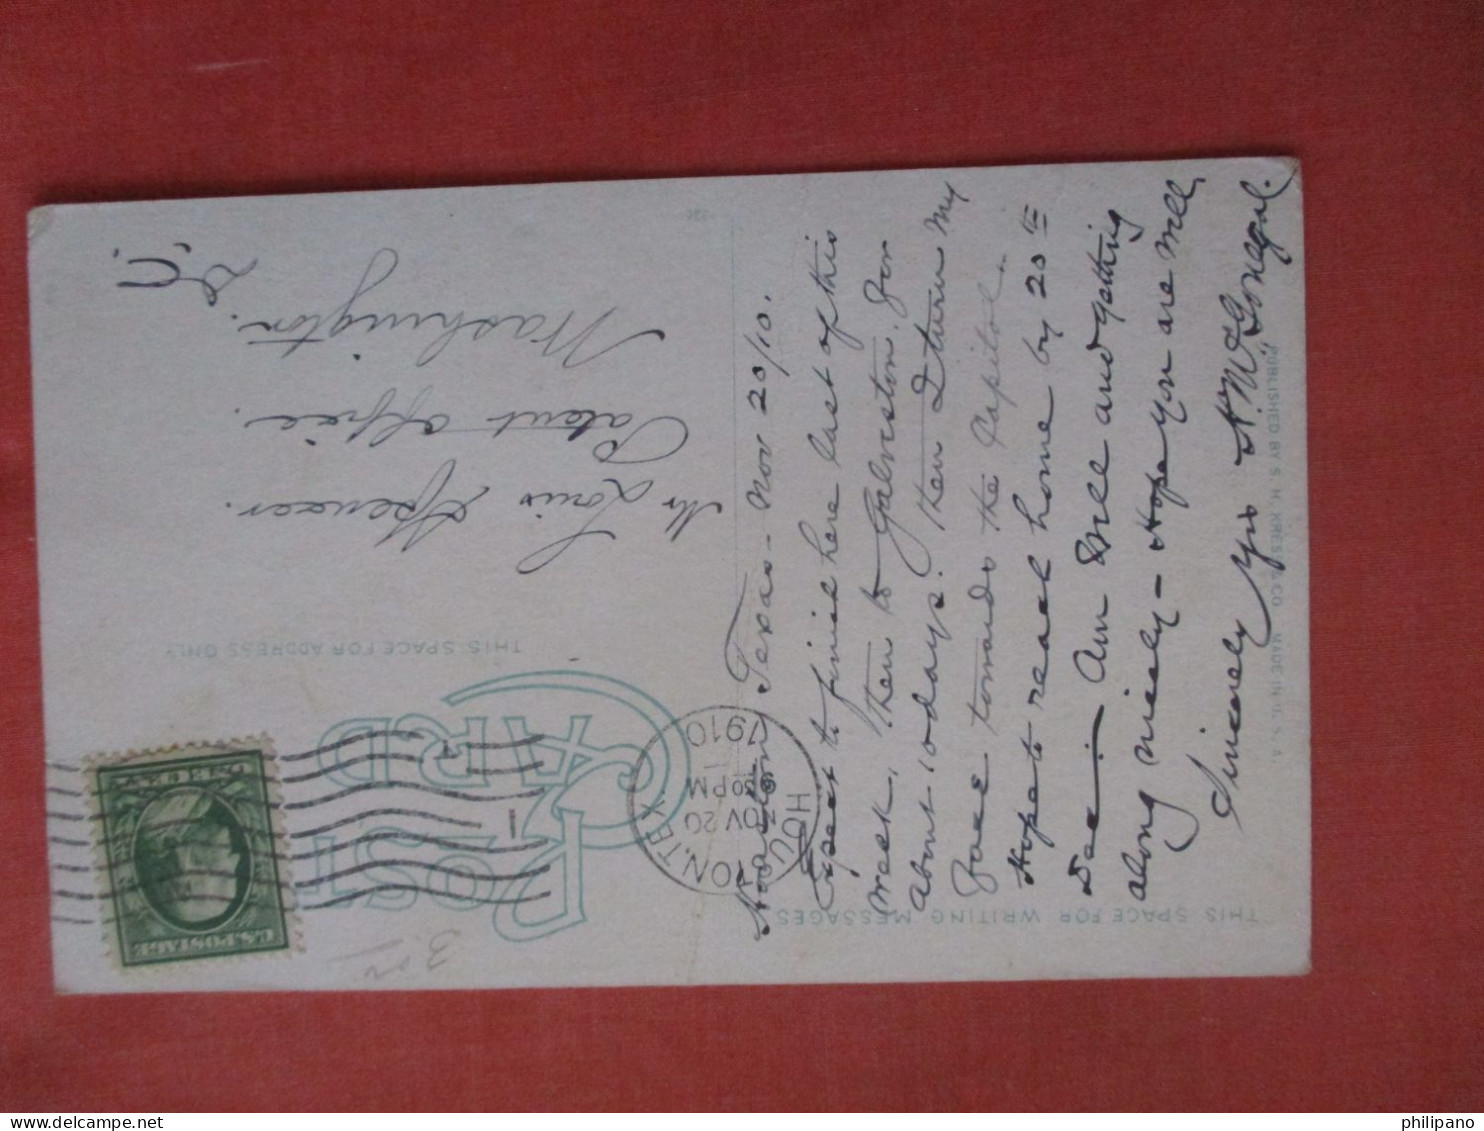 POST CARD
THIS SPACE FOR WRITING MESSAGES
THIS SPACE FOR ADDRESS ONLY
HOUSTON, TEX.
NOV 20
30 PM
1910
1
U.S. POSTAGE
Houston Texas - Nov 20/10.
Expect to finish here last of this
week, then to Galveston. for
about 10 days. then I turn my
face towards the Capitol.
Hope to reach home by 20th
Dec - Am well and getting
along nicely - Hope you are well
Sincerely yrs N. McGonegal.
Mr Louis Spencer.
Patent Office.
Washington.
D.C.
PUBLISHED BY S. H. KRESS & CO. MADE IN U.S.A.
philipano